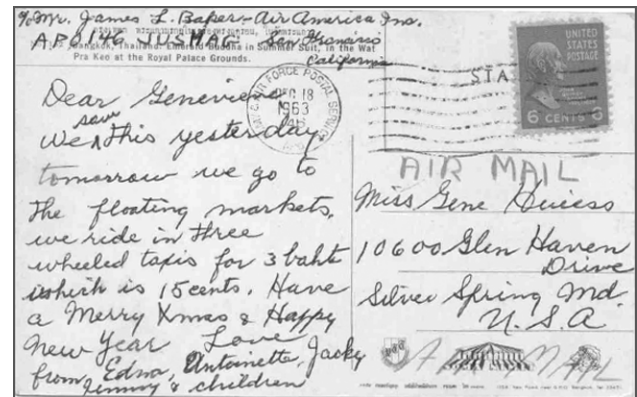 % Mr. James L. Baker - Air America Inc.
APO 146 JUSMAG San Francisco
California
Bangkok, Thailand: Emerald Buddha in Summer Suit, in the Wat
Pra Keo at the Royal Palace Grounds.
AIR FORCE POSTAL SERVICE
DEC 18
1963
APO
UNITED
STATES
POSTAGE
6 CENTS 6
Dear Genevieve
We saw this yesterday
tomorrow we go to
the floating markets.
we ride in three
wheeled taxis for 3 bahts
which is 15 cents. Have
a Merry Xmas & Happy
New Year Love
from Edna, Antoinette, Jacky
Jimmy & children
AIR MAIL
Miss Gene
10600 Glen Haven
Drive
Silver Spring Md.
U.S.A
AIR MAIL